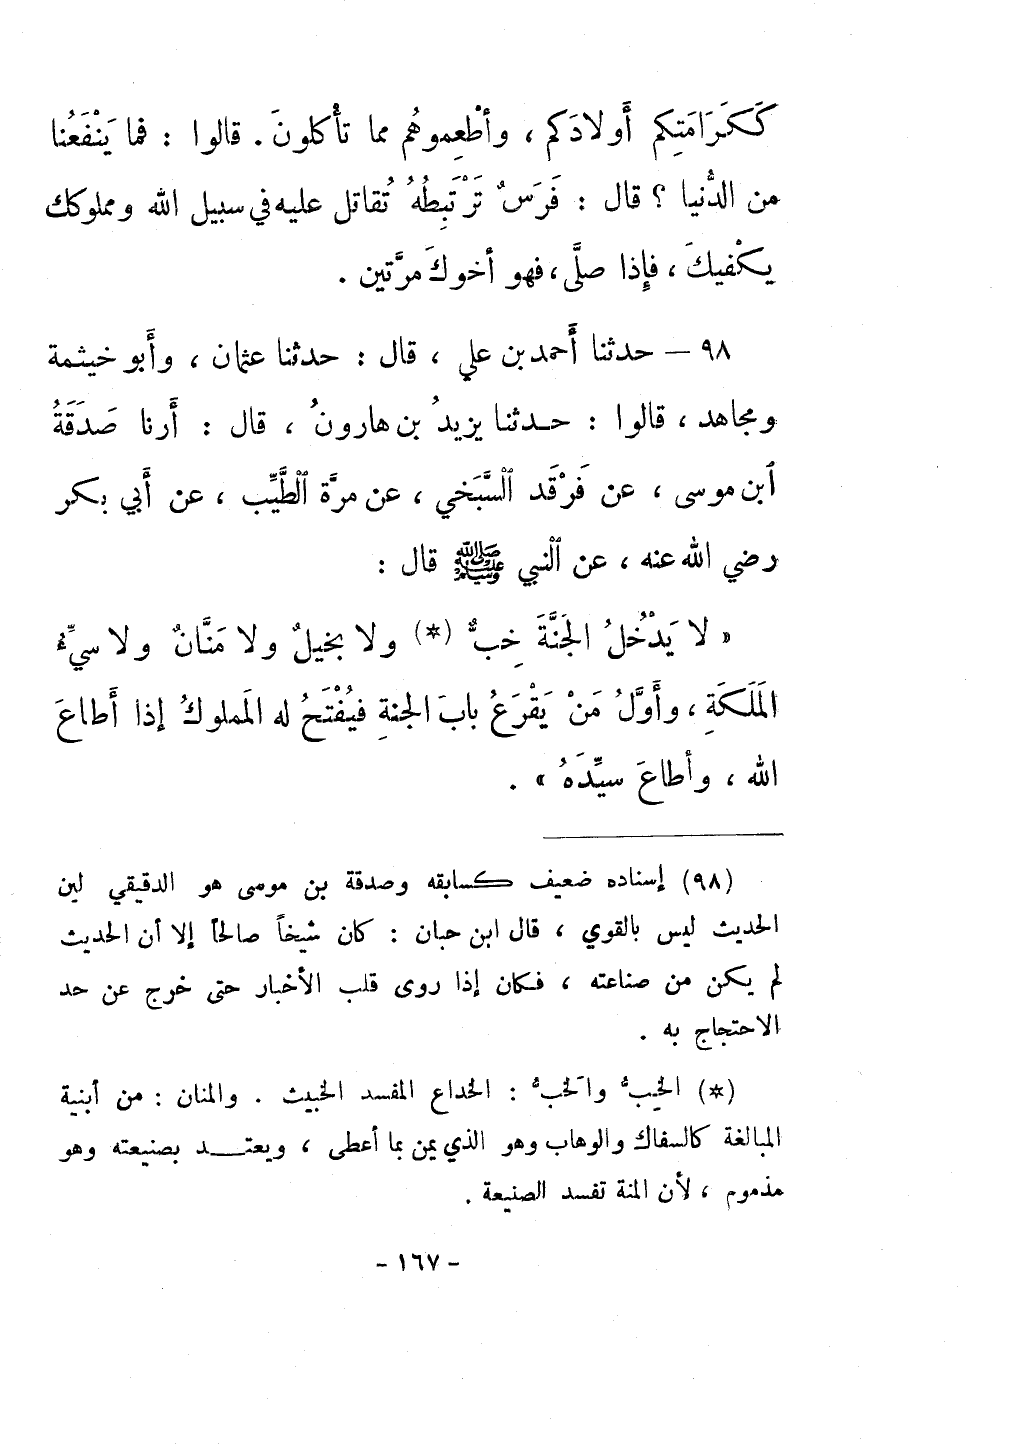 كَكَرَامَتِكم أَولادَكم ، وأطْعِموهُم مما تأكلونَ . قالوا : فما يَنْفَعُنا
من الدُّنيا ؟ قال : فَرَسٌ تَرْتَبِطُهُ تُقاتل عليه في سبيل الله ومملوكك
يكْفيكَ ، فإِذا صلَّى ، فهو أخوكَ مرَّتين .
٩٨ – حدثنا أَحمد بن علي ، قال : حدثنا عثمان ، وأَبو خيثمة
ومجاهد ، قالوا : حدثنا يزيدُ بن هارونُ ، قال : أَرنا صَدَقَةُ
ٱبن موسى ، عن فَرْقَد ٱلسَّبَخي ، عن مرَّة ٱلطَّيِّب ، عن أَبي بكر
رضي الله عنه ، عن ٱلنبي ﷺ قال :
« لا يَدْخُلُ الجَنَّةَ خِبٌّ (*) ولا بخيلٌ ولا مَنَّانٌ ولا سيِّءُ
المَلَكَةِ ، وأَوَّلُ مَنْ يَقْرَعُ بابَ الجنةِ فيُفْتَحُ له المَملوكُ إذا أَطاعَ
الله ، وأطاعَ سيِّدَهُ » .
(٩٨) إسناده ضعيف كسابقه وصدقة بن موسى هو الدقيقي لين
الحديث ليس بالقوي ، قال ابن حبان : كان شيخاً صالحاً إلا أن الحديث
لم يكن من صناعته ، فكان إذا روى قلب الأخبار حتى خرج عن حد
الاحتجاج به .
(*) الخِبُّ والخَبُّ : الخداع المفسد الخبيث . والمنان : من أبنية
المبالغة كالسفاك والوهاب وهو الذي يمن بما أعطى ، ويعتد بصنيعته وهو
مذموم ، لأن المنة تفسد الصنيعة .
- ١٦٧ -